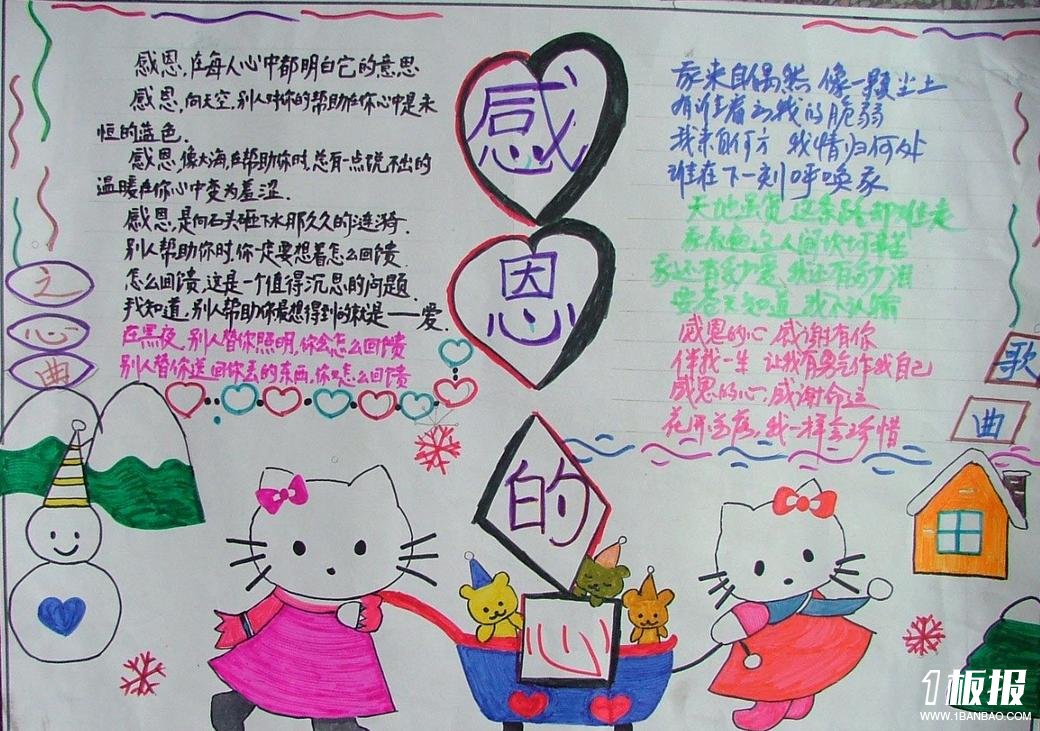 感恩的心
之心曲
感恩,在每人心中都明白它的意思
感恩,向天空,别人对你的帮助在你心中是永
恒的蓝色.
感恩,像大海,在帮助你时,总有一点说不出的
温暖在你心中变为羞涩.
感恩,是向石头砸下水那久久的涟漪.
别人帮助你时,你一定要想着怎么回馈.
怎么回馈,这是一个值得沉思的问题.
我知道,别人帮助你最想得到的就是——爱.
在黑夜,别人替你照明,你会怎么回馈
别人替你送回你丢的东西,你又怎么回馈
歌曲
我来自偶然 像一颗尘土
有谁看出我的脆弱
我来自何方 我情归何处
谁在下一刻呼唤我
天地虽宽 这条路却难走
我看遍这人间坎坷辛苦
我还有多少爱 我还有多少泪
要苍天知道 我不认输
感恩的心 感谢有你
伴我一生 让我有勇气作我自己
感恩的心,感谢命运
花开花落,我一样会珍惜
1板报
WWW.1BANBAO.COM